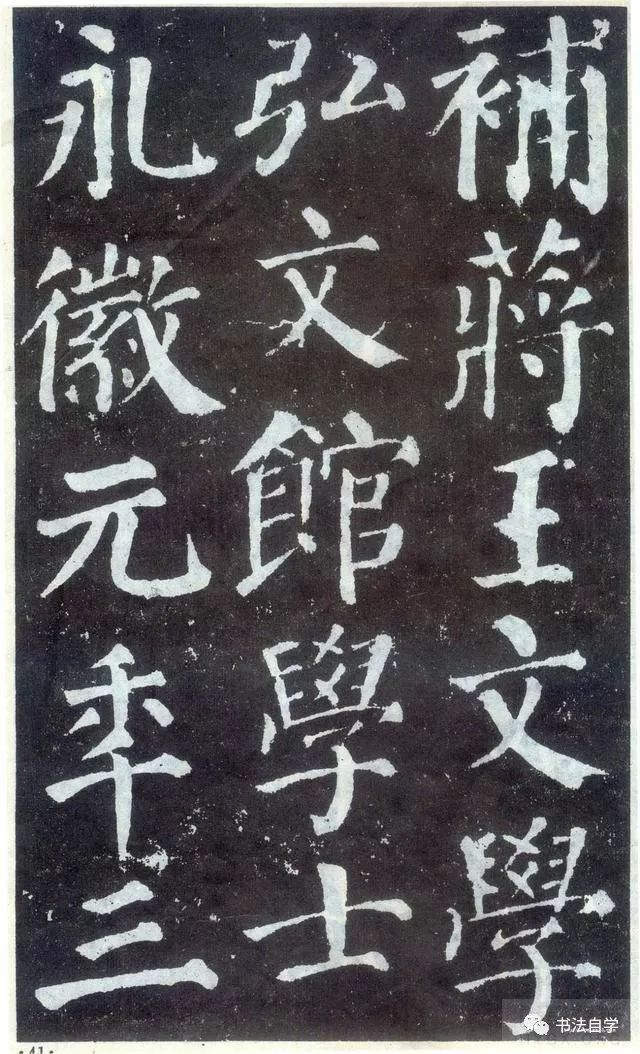 補蔣王文學
弘文館學士
永徽元年三
·41·
书法自学